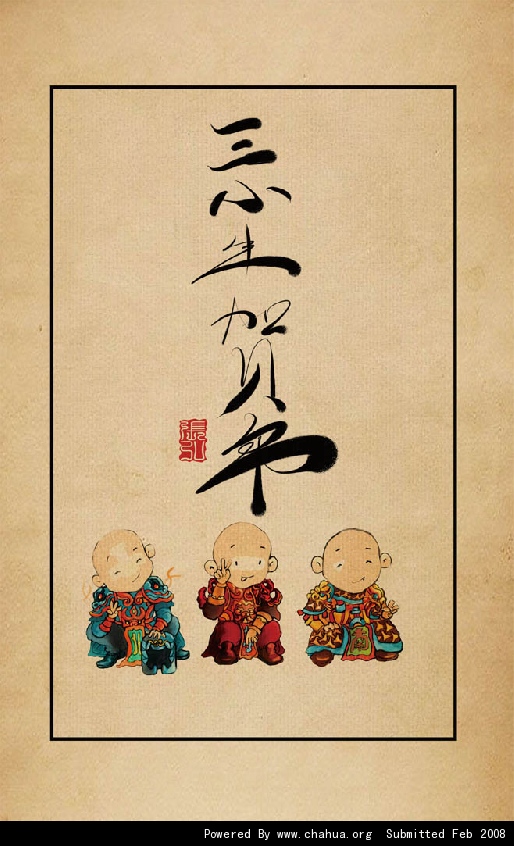 三小生贺年
張弘
Powered By www.chahua.org Submitted Feb 2008